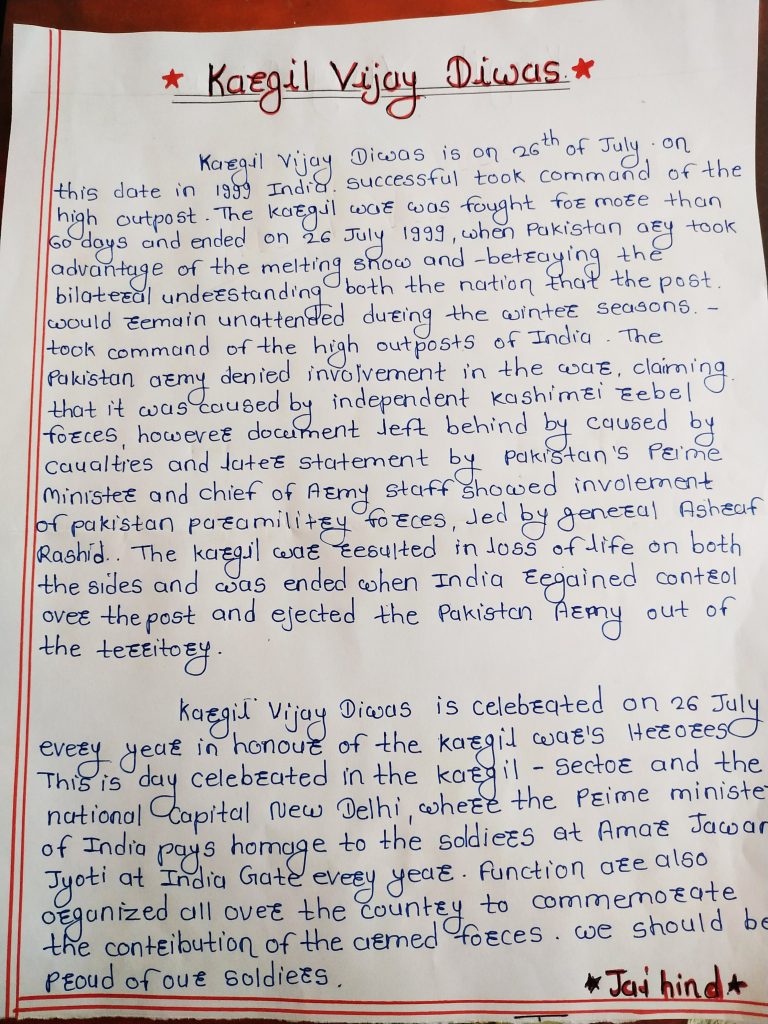 ★ Kargil Vijay Diwas. ★
Kargil Vijay Diwas is on 26th of July. on
this date in 1999 India. successful took command of the
high outpost. The kargil war was fought for more than
60 days and ended on 26 July 1999, when Pakistan ary took
advantage of the melting snow and -betraying the
bilateral understanding both the nation that the post.
would remain unattended during the winter seasons. -
took command of the high outposts of India. The
Pakistan army denied involvement in the war, claiming
that it was caused by independent kashimri rebel
forces, however document left behind by caused by
caualties and later statement by pakistan's Prime
Minister and chief of Army staff showed involement
of pakistan paramilitry forces, led by general Ashraf
Rashid.. The kargil war resulted in loss of life on both
the sides and was ended when India regained control
over the post and ejected the Pakistan Army out of
the territory.
Kargil Vijay Diwas is celebrated on 26 July
every year in honour of the kargil war's Heroes
This is day celebrated in the kargil - sector and the
national Capital New Delhi, where the Prime ministe
of India pays homage to the soldiers at Amar Jawan
Jyoti at India Gate every year. Function are also
organized all over the country to commemorate
the contribution of the armed forces. we should be
proud of our soldiers.
★Jai hind★